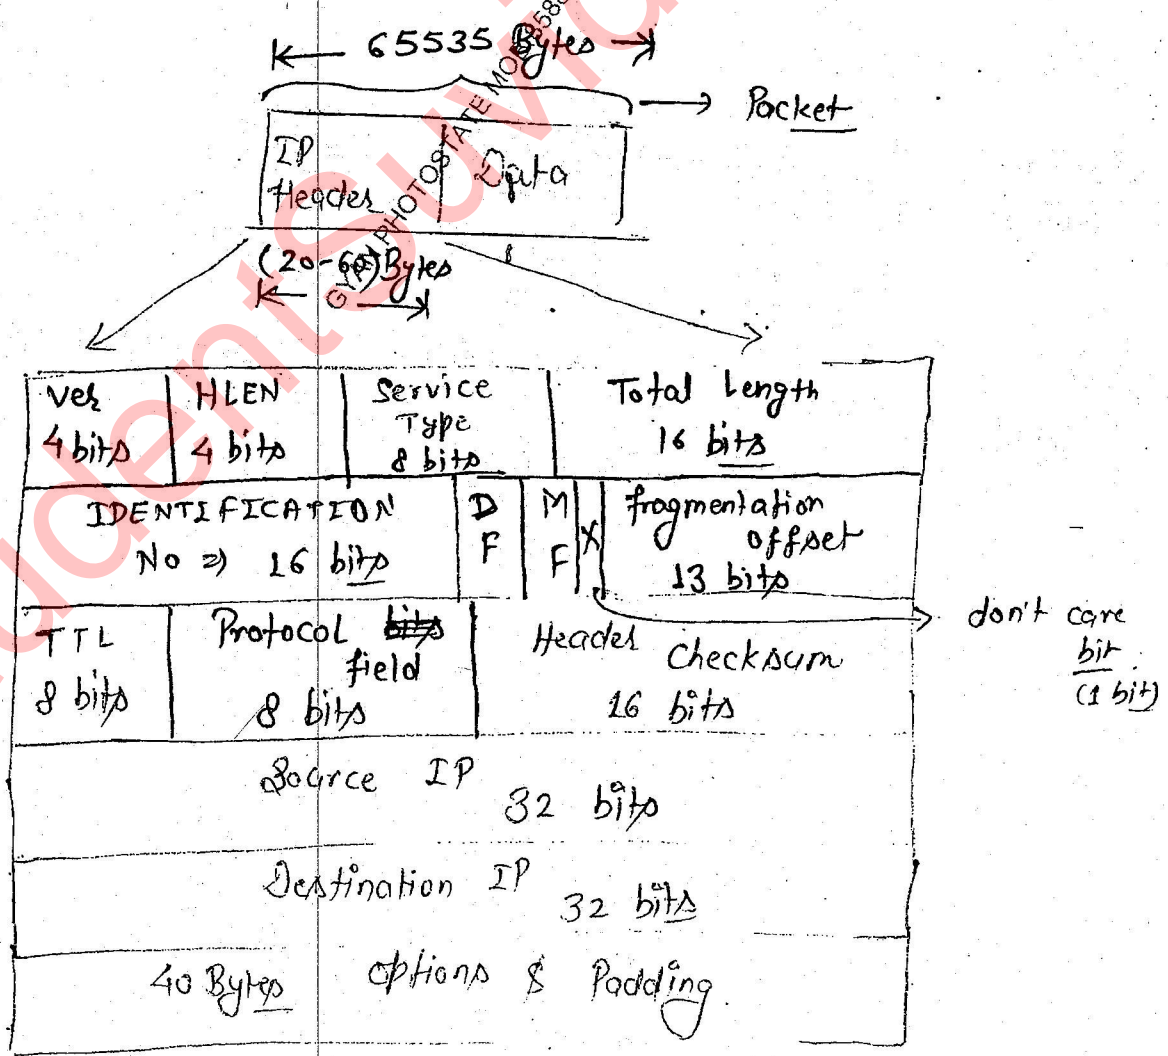 65535 Bytes
Packet
IP
Header
Data
(20-60) Bytes
Ver
4 bits
HLEN
4 bits
Service
Type
8 bits
Total Length
16 bits
IDENTIFICATION
No ⇒ 16 bits
D
F
M
F
X
fragmentation
offset
13 bits
TTL
8 bits
Protocol bits
field
8 bits
Header checksum
16 bits
don't care
bit
(1 bit)
Source IP
32 bits
Destination IP
32 bits
40 Bytes options & Padding
PHOTOSTATE